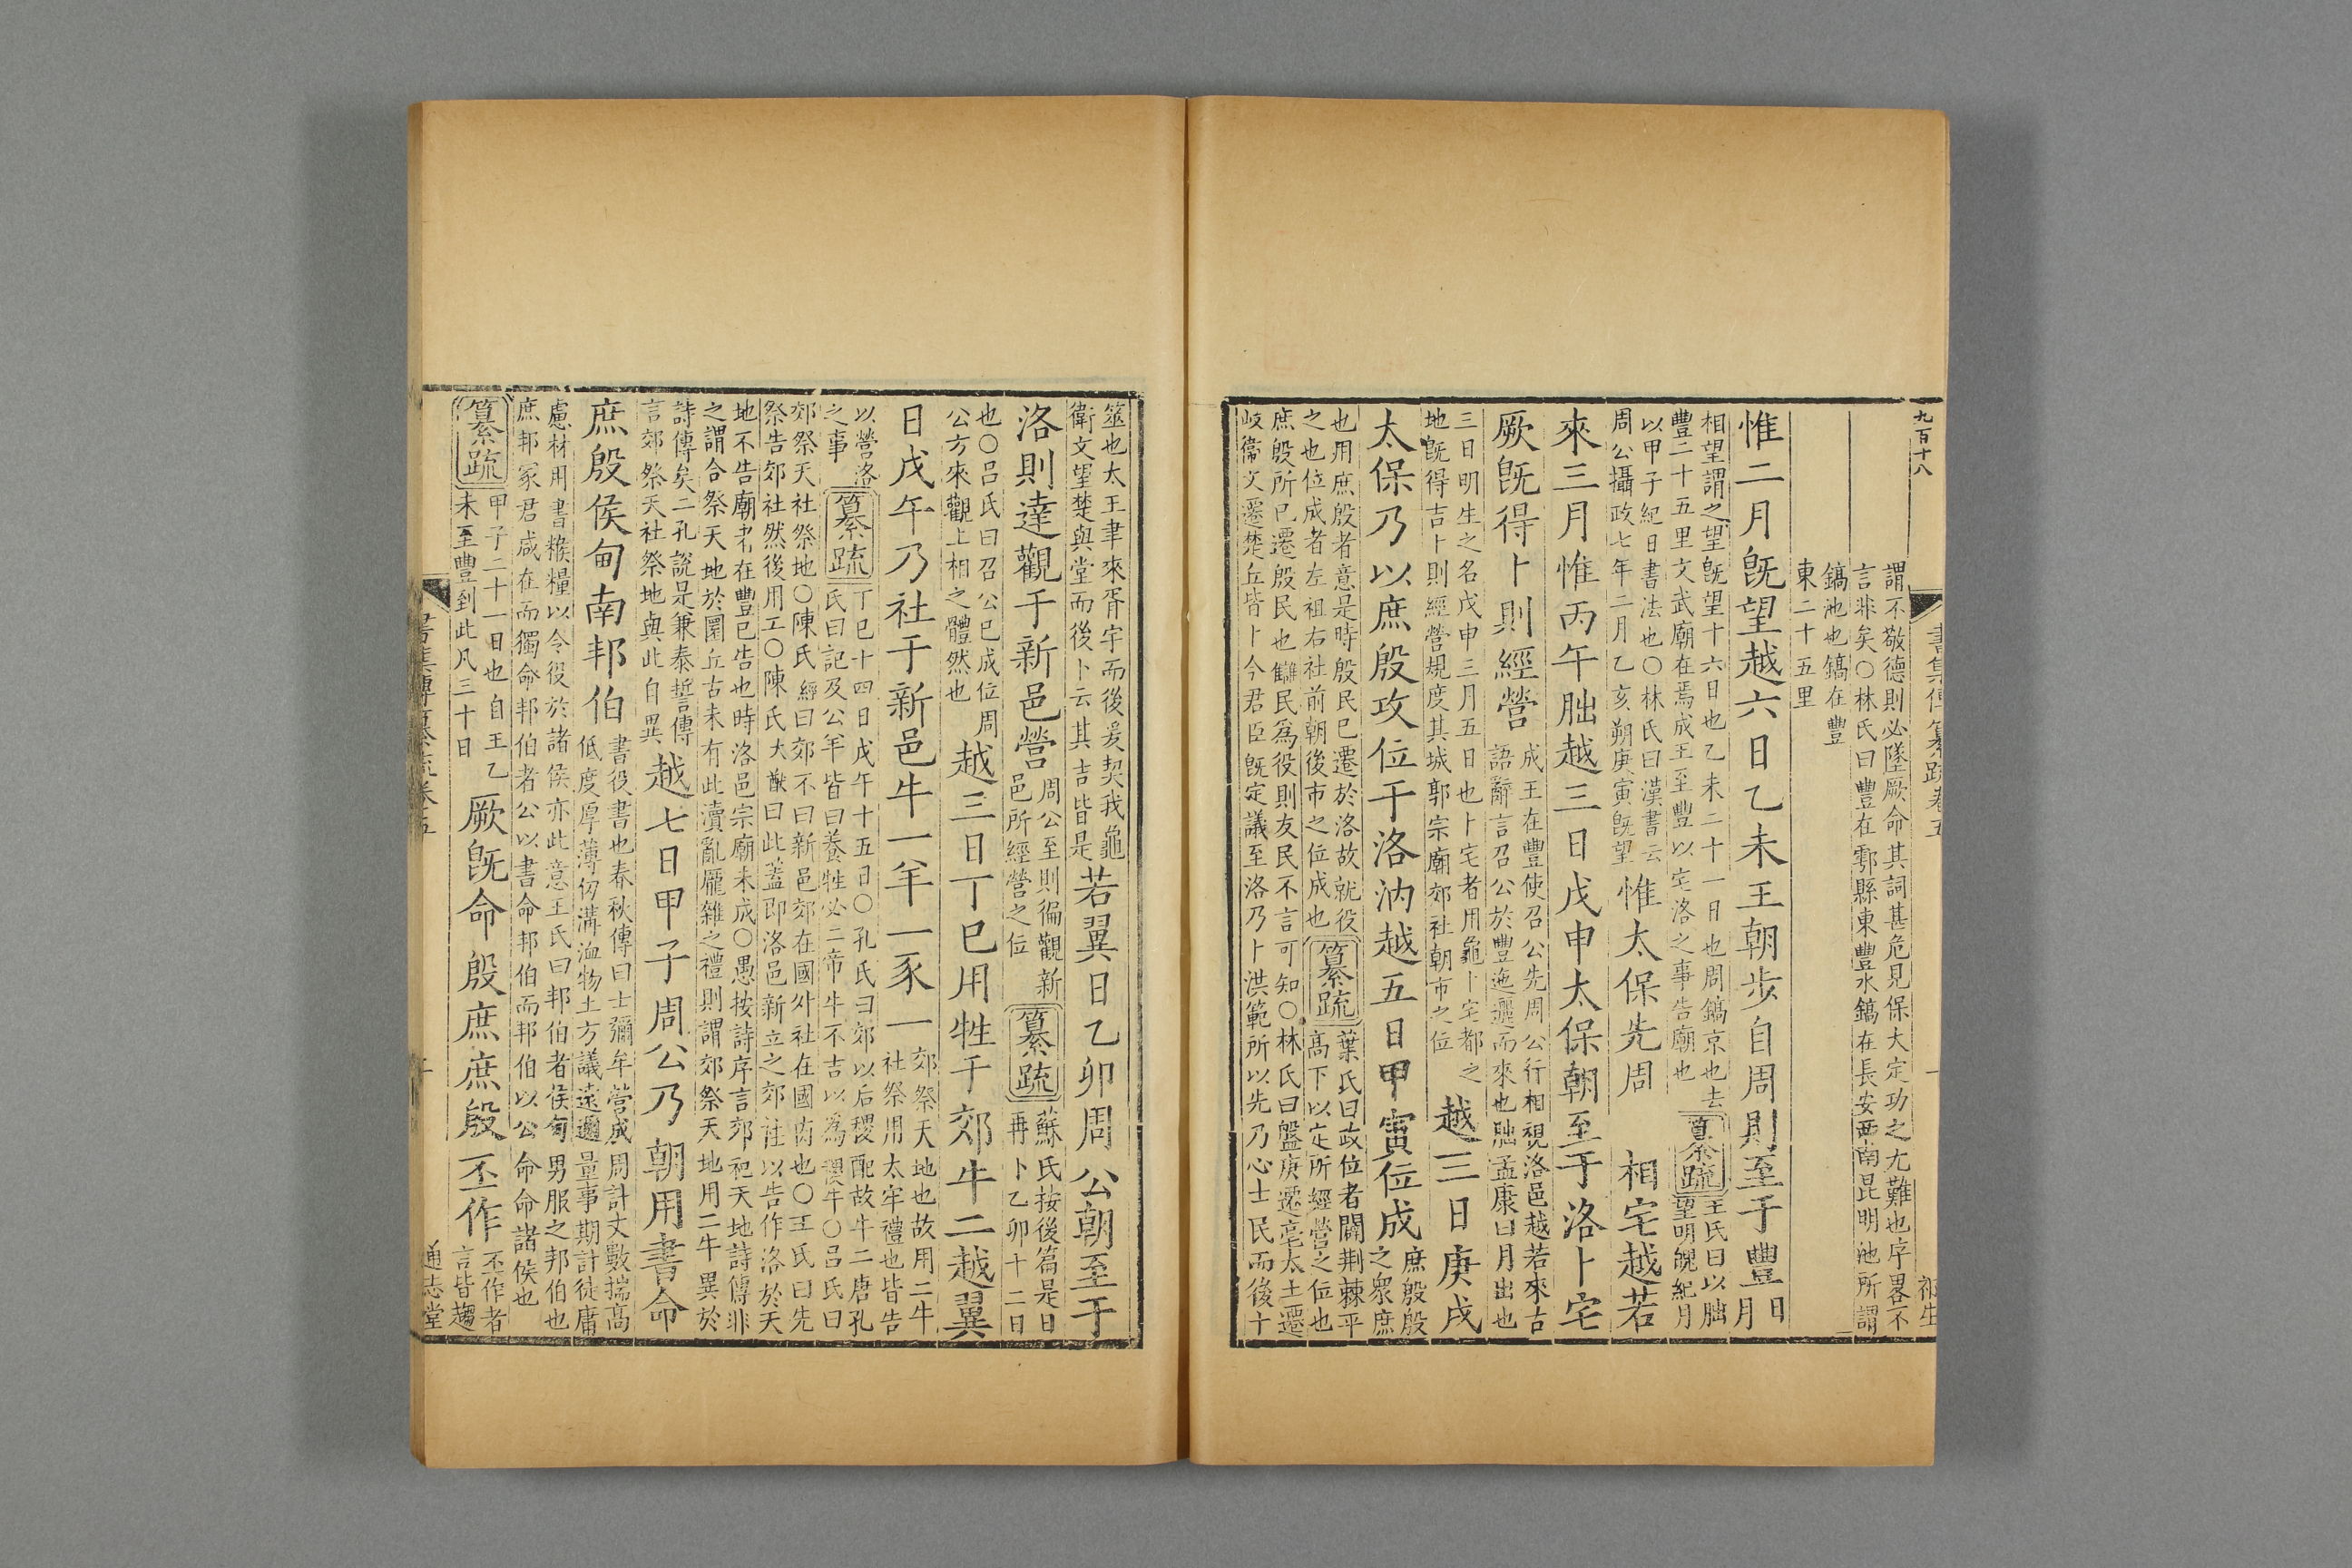 九百十八
書集傳纂疏卷五
一
祁生
謂不敬德則必墜厥命其詞甚危見保大定功之尢難也序畧不
言非矣○林氏曰豐在鄠縣東豐水鎬在長安西南昆明池所謂
鎬池也鎬在豐
東二十五里
惟二月旣望越六日乙未王朝步自周則至于豐
日月
相望謂之望旣望十六日也乙未二十一日也周鎬京也去
豐二十五里文武廟在焉成王至豐以宅洛之事告廟也
纂疏
王氏曰以朏
望明魄紀月
以甲子紀日書法也○林氏曰漢書云
周公攝政七年二月乙亥朔庚寅旣望
惟太保先周
相宅越若
來三月惟丙午朏越三日戊申太保朝至于洛卜宅
厥旣得卜則經營
成王在豐使召公先周公行相視洛邑越若來古
語辭言召公於豐迤邐而來也朏孟康曰月出也
三日明生之名戊申三月五日也卜宅者用龜卜宅都之
地旣得吉卜則經營規度其城郭宗廟郊社朝市之位
越三日庚戌
太保乃以庶殷攻位于洛汭越五日甲寅位成
庶殷殷
之衆庶
也用庶殷者意是時殷民已遷於洛故就役
之也位成者左祖右社前朝後市之位成也
纂疏
葉氏曰攻位者闢荆棘平
高下以定所經營之位也
庶殷所已遷殷民也讎民爲役則友民不言可知○林氏曰盤庚遷亳太王遷
岐衞文遷楚丘皆卜今君臣旣定議至洛乃卜洪範所以先乃心士民而後卜
筮也太王聿來胥宇而後爰契我龜
衛文望楚與堂而後卜云其吉皆是
若翼日乙卯周公朝至于
洛則達觀于新邑營
周公至則徧觀新
邑所經營之位
纂疏
蘇氏按後篇是日
再卜乙卯十二日
也○呂氏曰召公已成位周
公方來觀上相之體然也
越三日丁巳用牲于郊牛二越翼
日戊午乃社于新邑牛一羊一豕一
郊祭天地也故用二牛
社祭用太牢禮也皆告
以營洛
之事
纂疏
丁巳十四日戊午十五日○孔氏曰郊以后稷配故牛二唐孔
氏曰記及公羊皆曰養牲必二帝牛不吉以為稷牛○呂氏曰
郊祭天社祭地○陳氏經曰郊不曰新邑郊在國外社在國内也○王氏曰先
祭告郊社然後用工○陳氏大猷曰此蓋即洛邑新立之郊社以告作洛於天
地不告廟者在豐已告也時洛邑宗廟未成○愚按詩序言郊祀天地詩傳非
之謂合祭天地於圜丘古未有此瀆亂龎雜之禮則謂郊祭天地用二牛異於
詩傳矣二孔說是兼泰誓傳
言郊祭天社祭地與此自異
越七日甲子周公乃朝用書命
庶殷侯甸南邦伯
書役書也春秋傳曰士彌牟營成周計丈數揣高
低度厚薄仞溝洫物土方議遠邇量事期計徒庸
慮材用書糇糧以令役於諸侯亦此意王氏曰邦伯者侯甸男服之邦伯也
庶邦冢君咸在而獨命邦伯者公以書命邦伯而邦伯以公命命諸侯也
纂疏
甲子二十一日也自王乙
未至豐到此凡三十日
厥旣命殷庶庶殷丕作
丕作者
言皆趨
書集傳纂疏卷五
通志堂